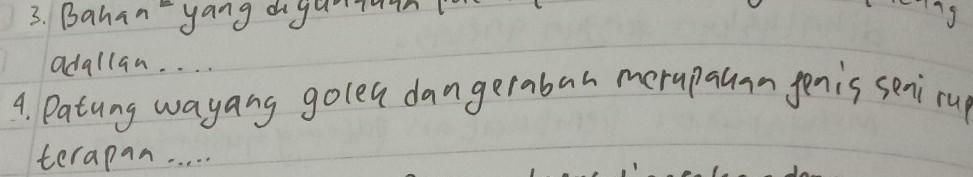 3. Bahan yang digunakan
adallan....
4. Patung wayang golek dan gerabah merupakan jenis seni rup
terapan.....